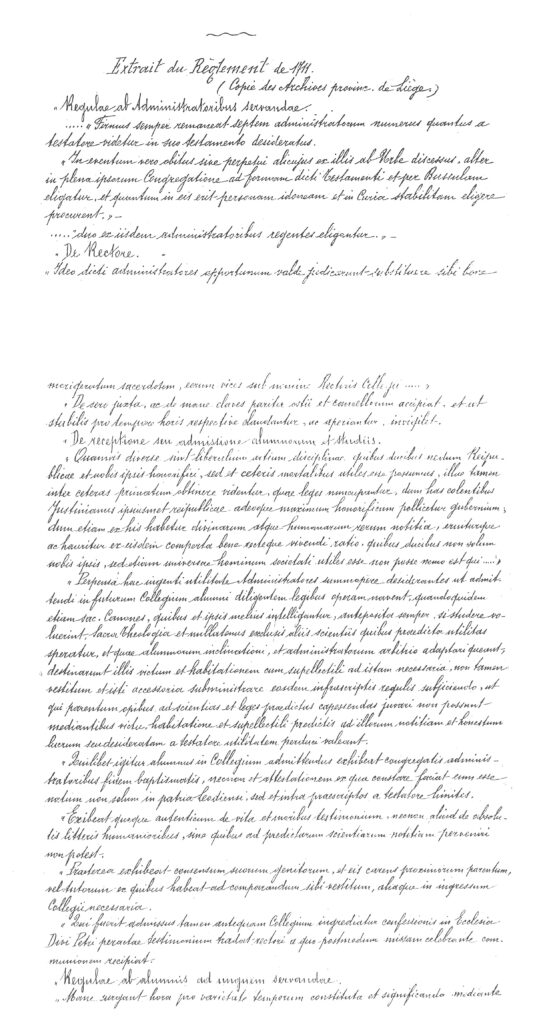 Extrait du Règlement de 1711.
(Copie des Archives provinc. de Liège.)
„ Regulae ab Administratoribus servandae.
..... „ Firmus semper remaneat septem administratorum numerus quantus a
testatore videtur in suo testamento desideratus.
„ In eventum vero obitus sive perpetui alicujus ex illis ab Urbe discessus, alter
in plena ipsorum Congregatione ad formam dicti Testamenti et per Bussulam
eligatur, et quantum in eis erit personam idoneam et in Curia stabilitam eligere
procurent. „ —
..... „ duo ex iisdem administratoribus regentes eligantur. „ —
„ De Rectore.
„ Ideo dicti administratores opportunum valde judicarunt substituere sibi bene
morigeratum sacerdotem, eorum vices sub nomine Rectoris Collegii ..... „
„ De sero juxta, ac de mane claves pariter ostii et cancellorum accipiat, et ut
stabilis pro tempore horis respective claudantur, ac aperiantur, invigilet.
„ De receptione seu admissione alumnorum et studiis.
„ Quamvis diversae sint liberalium artium disciplinae, quibus ducibus nedum Reipu-
blicae et nobis ipsis honorifici, sed et ceteris mortalibus utiles esse possumus, illae tamen
inter ceteras primatum obtinere videntur, quae leges nuncupantur, dum has colentibus
Justinianus ipsusmet reipublicae adeoque maximum honorificum pollicetur gubernium;
dum etiam ex his habetur divinarum atque humanarum rerum notitia, eruiturque
ac hauritur ex eisdem comperta bene recteque vivendi ratio, quibus ducibus non solum
nobis ipsis, sed etiam universae hominum societati utiles esse non posse nemo est qui .....„
„ Perpensa hac ingenti utilitate Administratores summopere desiderantes ut admit-
tendi in futurum Collegium alumni diligentem legibus operam navent, quandoquidem
etiam sac. Canones, quibus et ipsis melius intelliguntur, anteposita semper, si studere vo-
luerint, Sacra Theologia et nullatenus exclusis aliis scientiis quibus praedicta utilitas
speratur, et quae alumnorum inclinationi, et administratorum arbitrio adaptari queant,
destinarunt illis victum et habitationem cum supellectili ad istam necessaria, non tamen
vestitum et isti accessoria subministrare eosdem infrascriptis regulis subjiciendo, ut
qui parentum opibus ad scientias et leges praedictas capessendas juvari non possunt
mediantibus victu, habitatione et supellectili predictis ad illorum notitiam et honestum
lucrum seu desideratam a testatore utilitatem perduci valeant.
„ Quilibet igitur alumnus in Collegium admittendus exhibeat congregatis adminis-
tratoribus fidem baptismatis, necnon et attestationem ex qua constare faciat eum esse
natum non solum in patria Leodiensi, sed et intra praescriptos a testatore limites.
„ Exibeat quoque autenticum de vita et moribus testimonium, necnon aliud de absolu-
tis litteris humanioribus, sine quibus ad predictarum scientiarum notitiam perveniri
non potest.
„ Praeterea exhibeat consensum suorum genitorum, et eis carens proximorum parentum,
vel tutorum ex quibus habeat ad comparandum sibi vestitum, aliaque in ingressum
Collegii necessaria.
„ Qui fuerit admissus tamen antequam Collegium ingrediatur confessionis in Ecclesia
Divi Petri peractae testimonium tradat rectori a quo postmodum missam celebrante com-
munionem recipiat.
„ Regulae ab alumnis ad unguem servandae.
„ Mane surgant hora pro varietate temporum constituta et significanda mediante